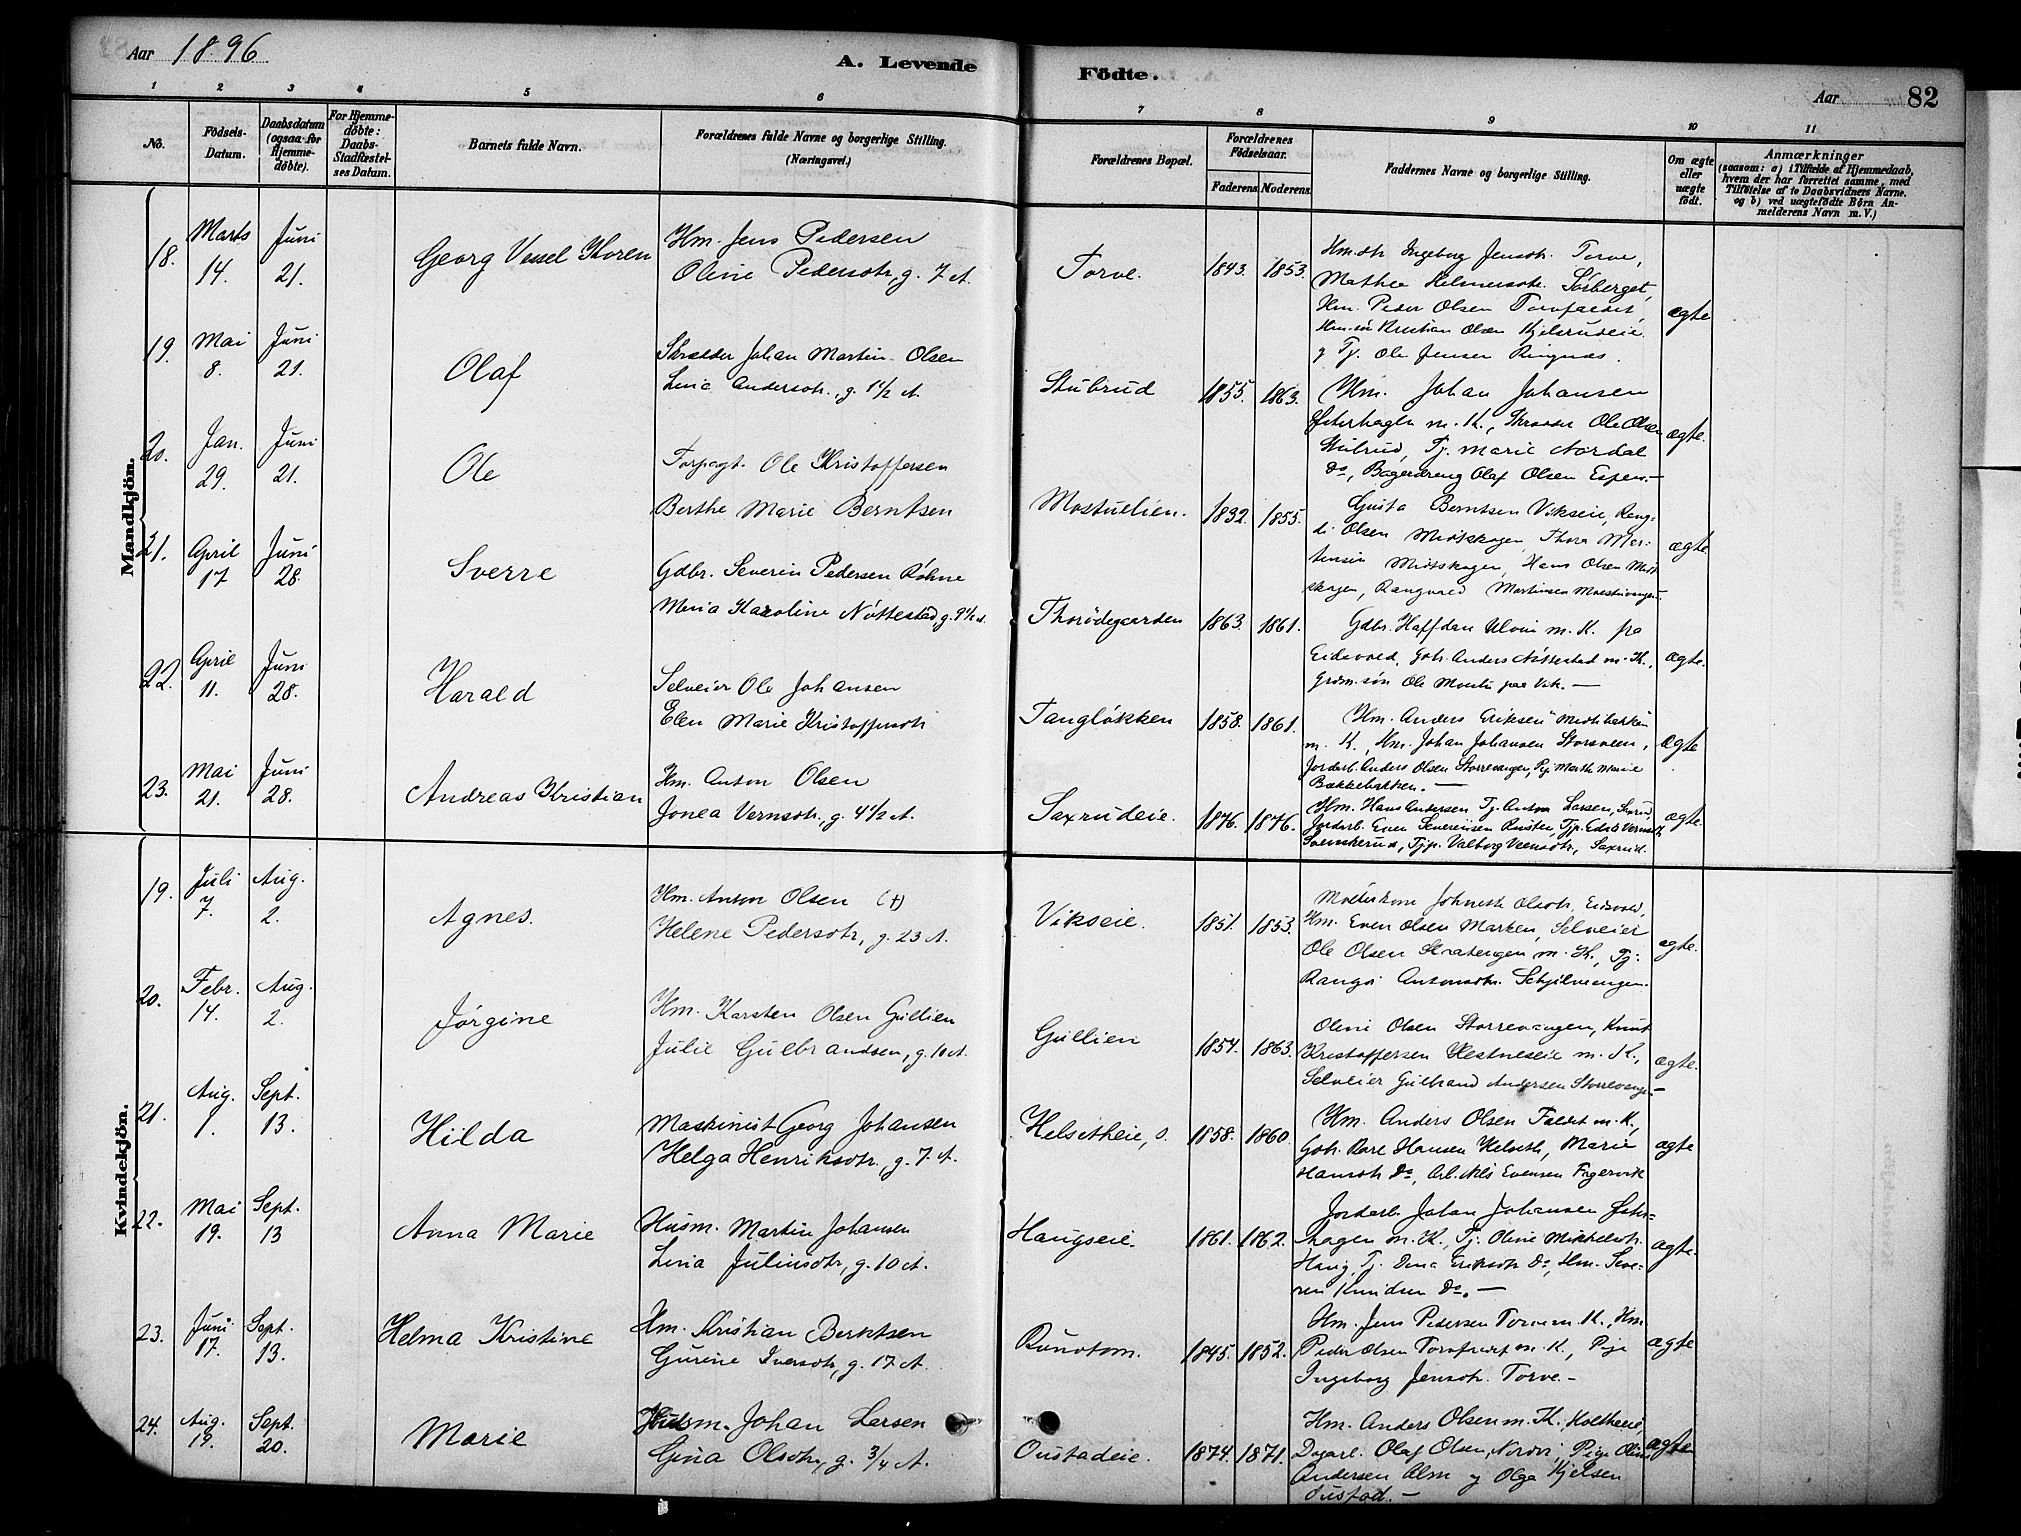 Aar 1896
A. Levende
Födte.
Aar 82
1 2 3 4 5 6 7 8 9 10 11
No.
Födsels-
Datum.
Daabsdatum
(ogsaa for
Hjemme-
döbte).
For Hjemme-
döbte:
Daabs-
Stadfæstel-
ses Datum.
Barnets fulde Navn.
Forældrenes fulde Navne og borgerlige Stilling.
(Næringsvei.)
Forældrenes Bopæl.
Forældrenes
Födselsaar.
Faderens. Moderens.
Faddernes Navne og borgerlige Stilling.
Om ægte
eller
uægte
födt.
Anmærkninger
(saasom: a) i Tilfælde af Hjemmedaab,
hvem der har forrettet samme, med
Tilföielse af to Daabsvidners Navne,
og b) ved uægtefödte Börn An-
melderens Navn m. V.)
Mandkjön.
18. Marts 14. Juni 21. Georg Vessel Thoren
Hm. Jens Pedersen
Oline Pedersdtr, g. 7 A.
Torve. 1843. 1853.
Hm.dtr Ingeborg Jensdtr. Torve,
Mathea Helmersdtr. Sörberget,
Hm. Peder Olsen Tornfaldet,
Hm. sön Kristian Olsen Kjelsrudeie
g Tj. Ole Jensen Ringnæs.
ægte
19. Mai 8. Juni 21. Olaf
Skrædder Johan Martin Olsen
Lina Andersdtr., g. 1 1/2 A.
Stubrud 1855. 1863.
Hm. Johan Johansen
Østerhagen m. K., Skrædder Ole Olsen
Stubrud, Tj. Marie Nordal
Do, Bagerdreng Olaf Olsen Espen.—
ægte.
20. Jan. 29. Juni 21. Ole
Forpagt. Ole Kristoffersen
Berthe Marie Berntsen
Mostuelien. 1832. 1855.
Gusta Berntsen Vikseie,
Olsen Midtskogen, Thora Mar-
tinsen Midtskogen, Hans Olsen Midt
skogen, Rangvald Martinsen
ægte
21. April 17 Juni 28. Sverre
Gdbr. Severin Pedersen Rohne
Maria Karoline Nöttestad, g. 9 1/2 A.
Thorödegaarden 1863. 1861.
Gdbr. Halfdan Ulvin m. K. paa
Eidsvold, Gbr. Anders Nöttestad m. K.,
Grdm.sön Ole Moestu paa Vik.—
ægte.
22. April 11. Juni 28. Harald
Selveier Ole Johansen
Elen Marie Kristoffersdtr
Tanglökken 1858. 1861.
Hm. Anders Eriksen Midtibakken
m. K., Hm. Johan Johansen Storsveen,
Jorderb. Anders Olsen Storrevangen, Pige Marth Marie
Bakkebakken.—
ægte
23. Mai 21. Juni 28. Andreas Kristian
Hm. Anton Olsen
Jonea Vernsdtr, g. 4 1/2 A.
Saxrudeie. 1876. 1876.
Hm. Hans Andersen Tj. Anton Larsen, Saxrud
Jorderb. Even Severinsen Ruster, Tjp.
Svenskerud, Tjp. Valborg Vernsdtr., Saxrud.
ægte.
Kvindekjön.
19. Juli 7. Aug. 2. Agnes.
Hm. Anton Olsen (+)
Helene Pedersdtr, g. 23 A.
Vikseie. 1851. 1853.
Johneth Olsdtr, Eidsvold,
Hm. Even Olsen Marken, Selveier
Ole Olsen Skrabergen m. K., Tj.
Rangdi Antonsdtr. Schjilvangen.
ægte.
20. Febr. 14. Aug. 2. Jörgine
Hm. Karsten Olsen Gullien
Julie Gulbrandsen, g. 10 A.
Gullien 1854. 1863.
Oline Olsen Storrevangen, Knut
Kristoffersen Hestneseie m. K.,
Selveier Gulbrand Andersen Storrevange—
ægte.
21. Aug. 1. Sept. 13. Hilda
Maskinist Georg Johansen
Helga Henriksdtr. g. 7 A.
Helsetheie, s. 1858. 1860.
Hm. Anders Olsen Faldet m. K.,
Gbr. Karl Hansen Helseth, Marie
Hansdtr Do, Arb. Nils Evensen Fagervik
ægte
22. Mai 19. Sept. 13 Anna Marie
Husm. Martin Johansen
Lina Juliusdtr, g. 10 A.
Haugseie. 1861. 1862.
Jorderb. Johan Johansen Øster-
hagen m. K., Tj. Oline Mikkelsdtr.
Haug, Tj. Dina Eriksdtr Do, Hm. Seve-
rin Knudsen Do.—
ægte.
23. Juni 17. Sept. 13. Helma Kristine
Hm. Kristian Berntsen
Gurine Iversdtr, g. 17 A.
Rundtom. 1845. 1852.
Hm. Jens Pedersen Torve m. K., Hm.
Peder Olsen Tornfaldet m. K., Pige
Ingeborg Jensdtr. Torve.—
ægte
24. Aug. 19. Sept. 20. Marie
Husm. Johan Larsen
Gina Olsdtr, g. 3/4 A.
Oustadeie. 1874. 1871.
Hm. Anders Olsen m. K., Koltheeie,
Dagarb. Olaf Olsen, Nordvi, Pige Oline
Andersen Alm g Olga Kjelsen
Oustad.—
ægte